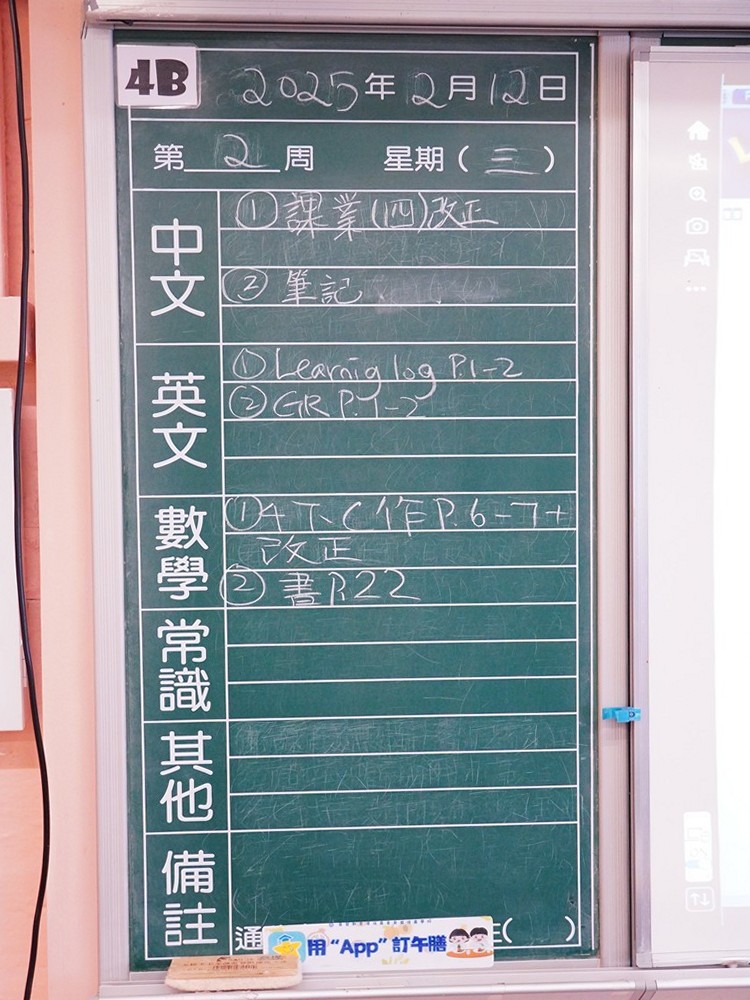 4B
2025年2月12日
第2周 星期(三)
中文
①課業(四)改正
②筆記
英文
①Learnig log P.1-2
②GR P.1-2
數學
①4下C作P.6-7+
改正
②書P.22
常識
其他
備註
通
用“App”訂午膳
( )